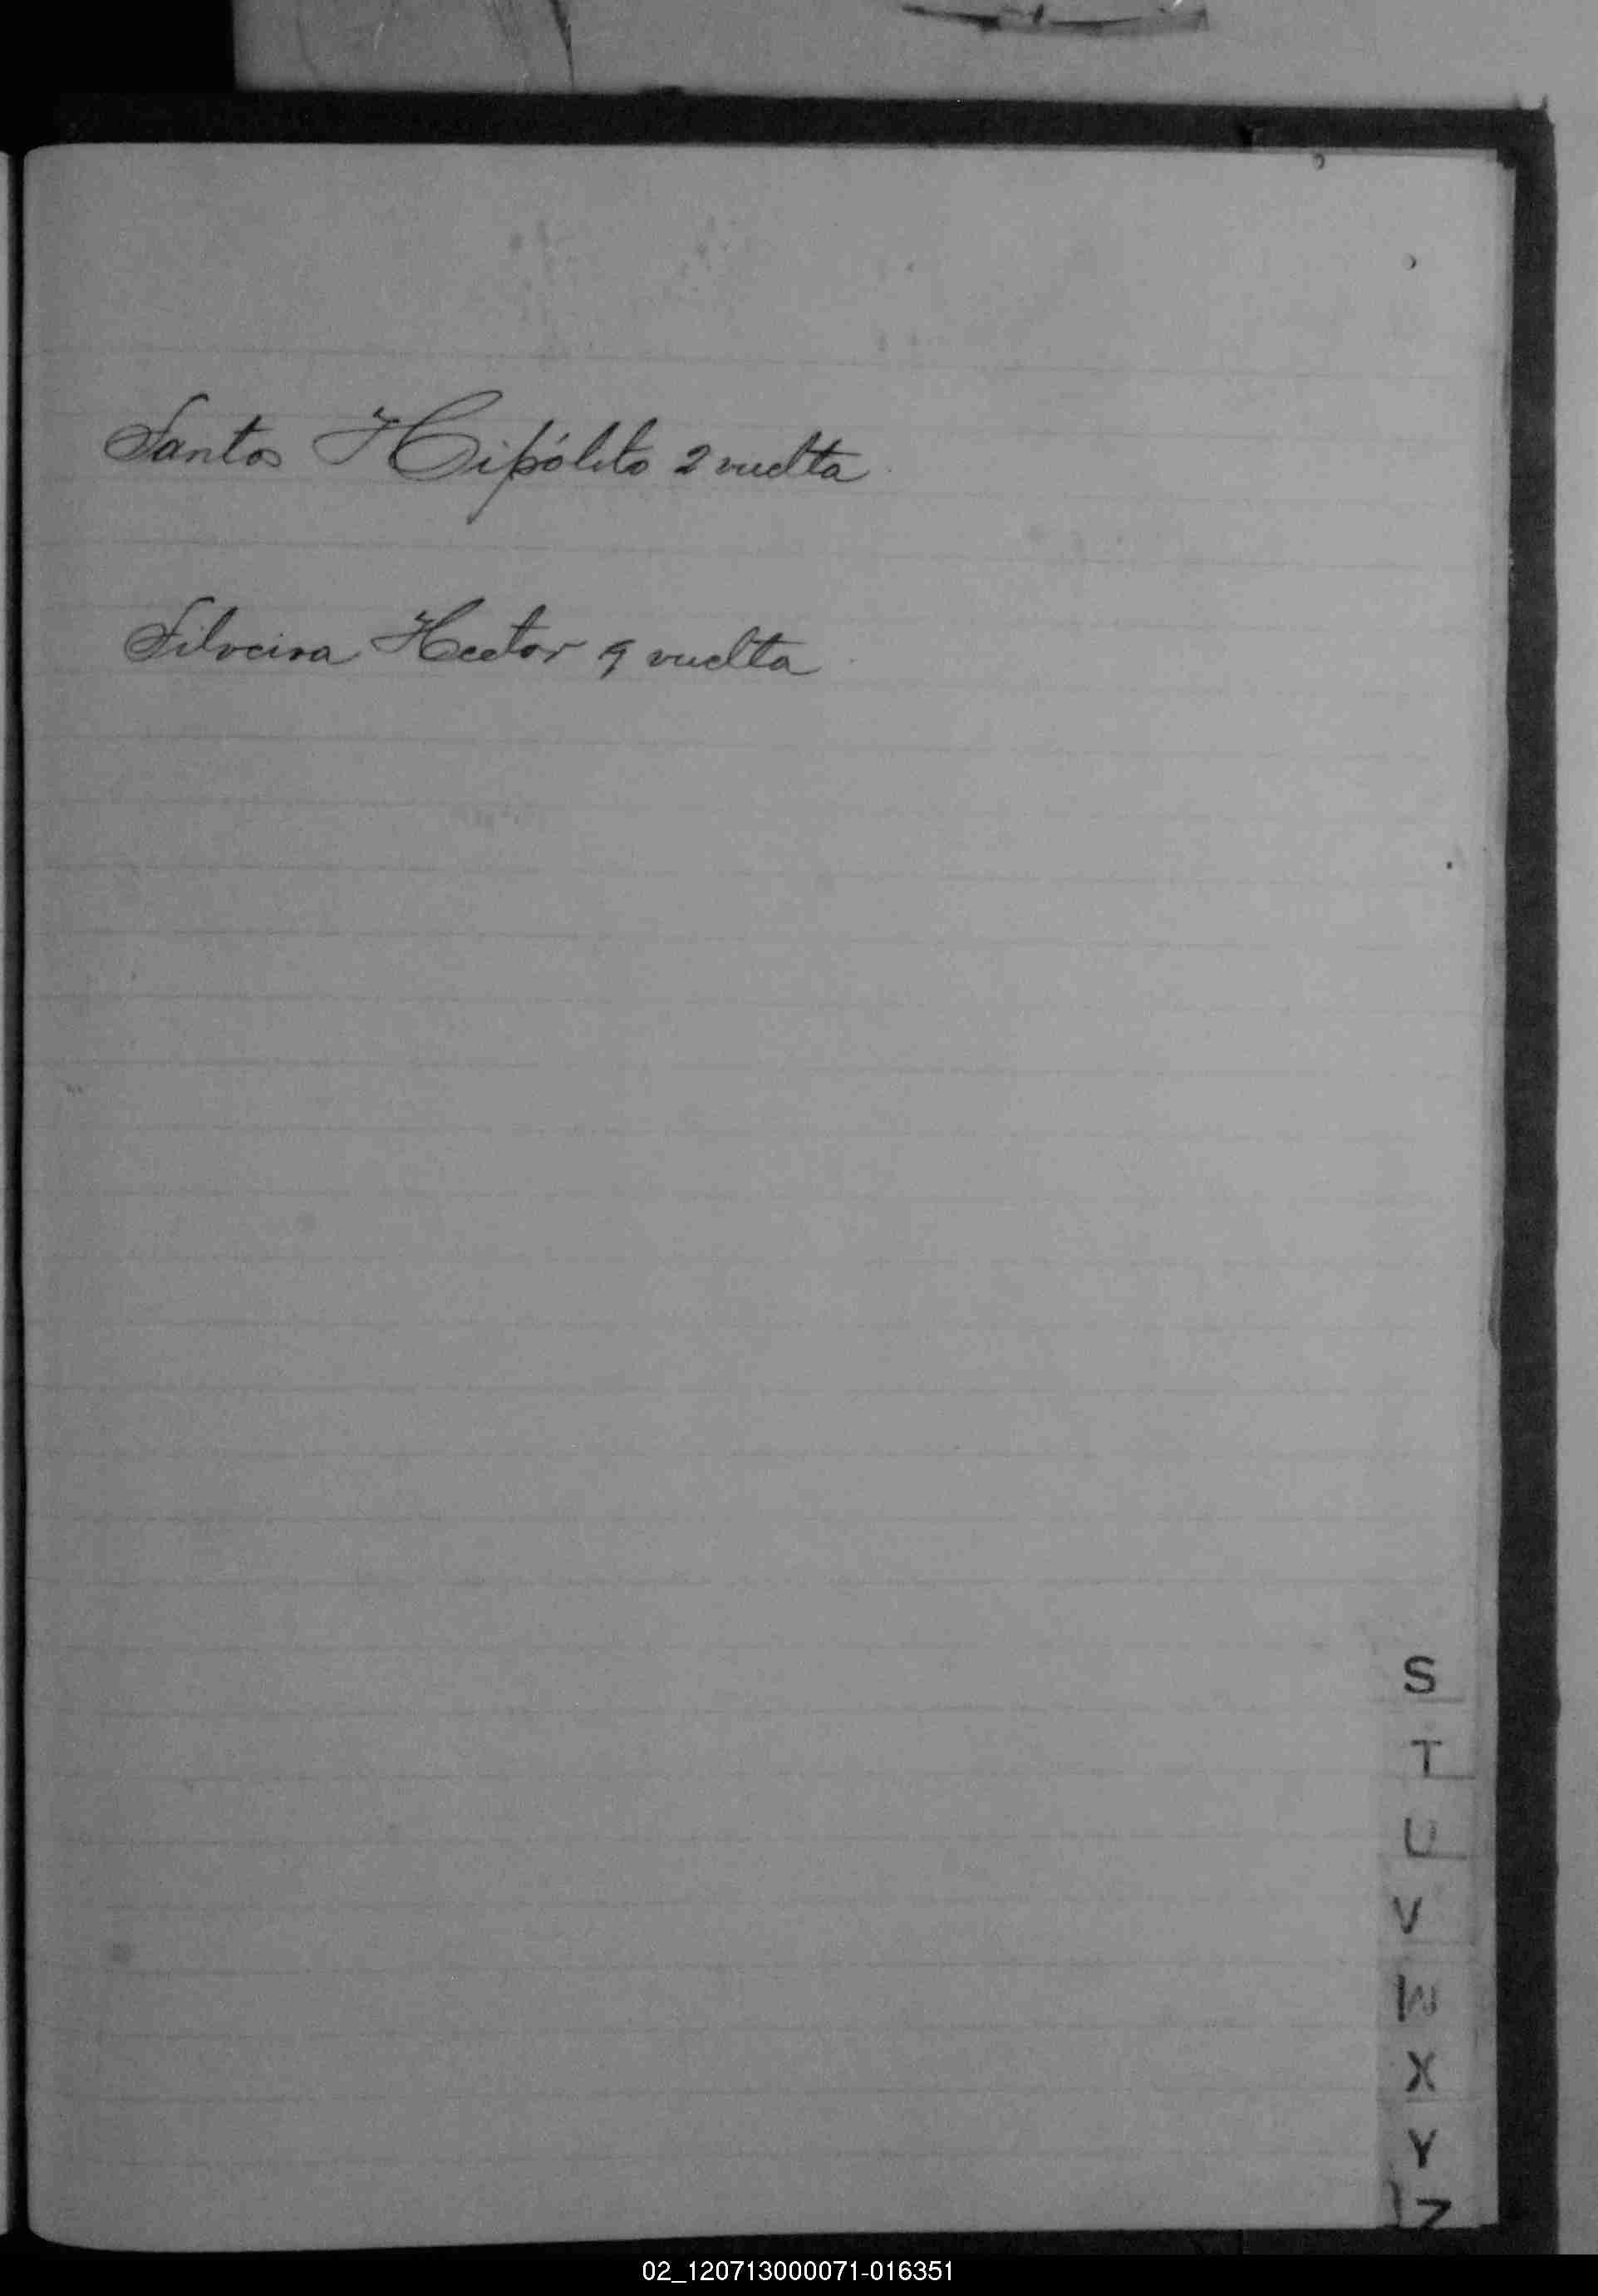 Santos Hipólito 2 vuelta
Silveira Hector 9 vuelta
S
T
U
V
W
X
Y
Z
02_120713000071-016351